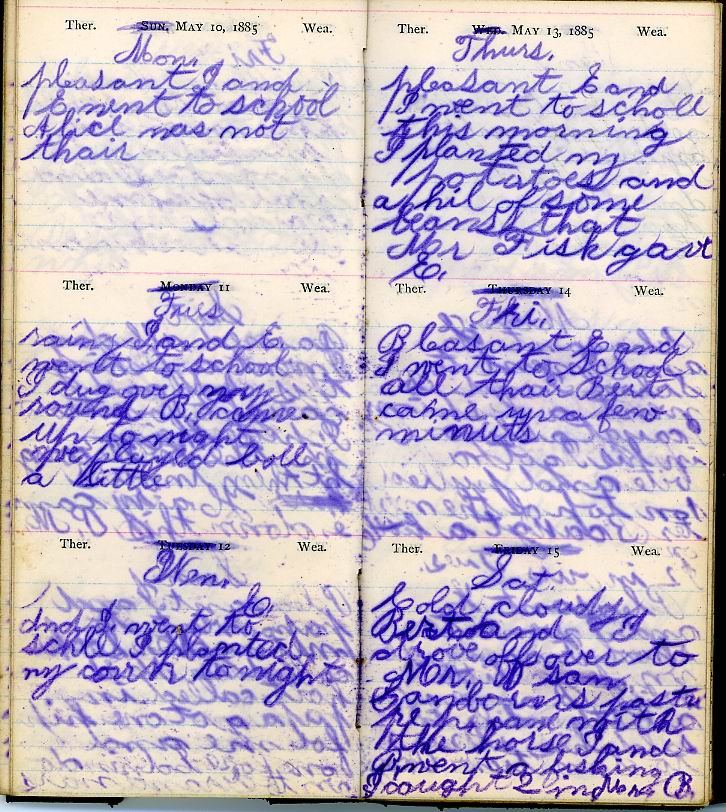 Ther. SUN, MAY 10, 1885 Wea.
Mon,
pleasant I and
E went to school
Alicl was not
thair
Ther. MONDAY 11 Wea.
rainy I and E
went to school
I dug over my
round B. came
up to night
we played boll
a little
Ther. TUESDAY 12 Wea.
Wen.
E.
and I went to
schle I planted
my corn to night
Ther. WED. MAY 13, 1885 Wea.
Thurs.
pleasant E and
I went to scholl
this morning
I planted my
potatoes and
a hil of some
beans that
Mr Fisk gave
E.
Ther. THURSDAY 14 Wea.
Fri.
Pleasant E and
I went to School
all thair Bert
came up a few
minuts
Ther. FRIDAY 15 Wea.
Sat.
Cold cloudy
Bert and I
drove off over to
Mr. W Sam
Sanborns pastu
with
the horse I and
went a fishing
I caught 2 in